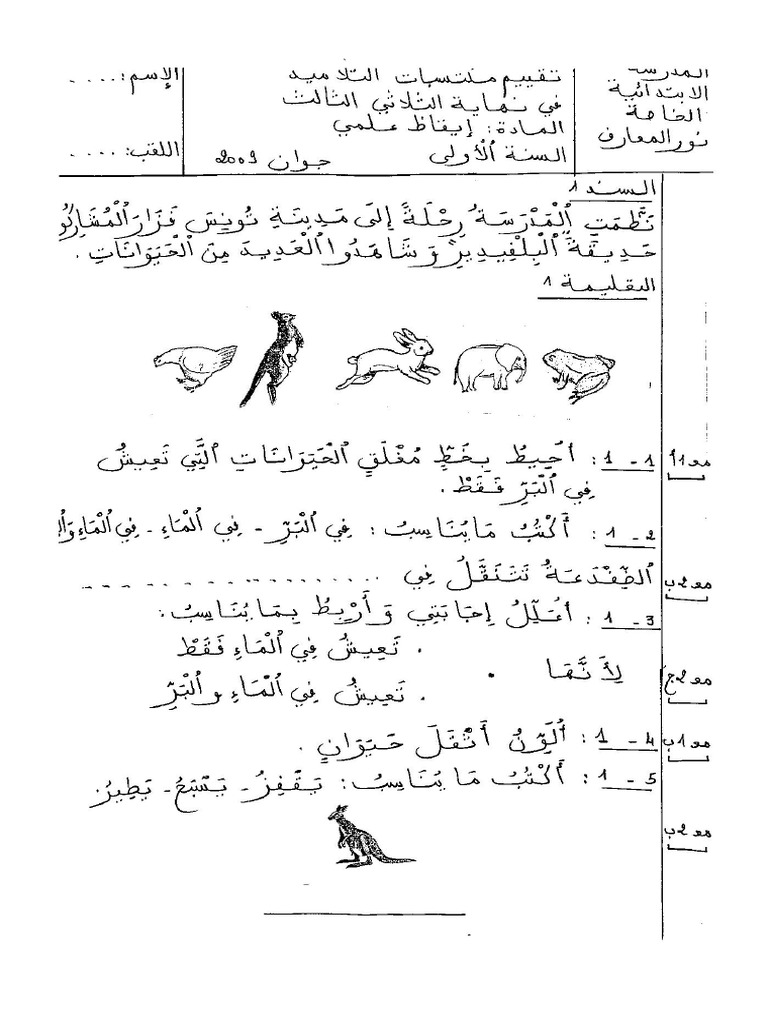 المدرسة
الابتدائية
الخاصة
نور المعارف
تقييم مكتسبات التلاميذ
في نهاية الثلاثي الثالث
المادة: إيقاظ علمي
السنة الأولى جوان 2009
الإسم: ....
اللقب: ....
السند 1
نَظَّمَتِ الْمَدْرَسَةُ رِحْلَةً إِلَى مَدِينَةِ تُونِسَ فَزَارَ الْمُشَارِكُو
حَدِيقَةَ الْبِلْفِيدِيرِ وَشَاهَدُوا الْعَدِيدَ مِنَ الْحَيَوَانَاتِ.
التعليمة 1
1 - 1 : أُحِيطُ بِخَطٍّ مُغْلَقٍ الْحَيَوَانَاتِ الَّتِي تَعِيشُ
فِي الْبَرِّ فَقَطْ.
مع1أ
1 - 2 : أَكْتُبُ مَا يُنَاسِبُ: فِي الْبَرِّ - فِي الْمَاءِ - فِي الْمَاءِ وَال
الضِّفْدَعَةُ تَتَنَقَّلُ فِي ....................
مع2ب
1 - 3 : أُعَلِّلُ إِجَابَتِي وَأَرْبِطُ بِمَا يُنَاسِبُ:
. تَعِيشُ فِي الْمَاءِ فَقَطْ
لِأَنَّهَا .
. تَعِيشُ فِي الْمَاءِ وَالْبَرِّ
مع2ج
1 - 4 : أُلَوِّنُ أَثْقَلَ حَيَوَانٍ.
مع1ب
1 - 5 : أَكْتُبُ مَا يُنَاسِبُ: يَقْفِزُ - يَسْبَحُ - يَطِيرُ.
مع2ب